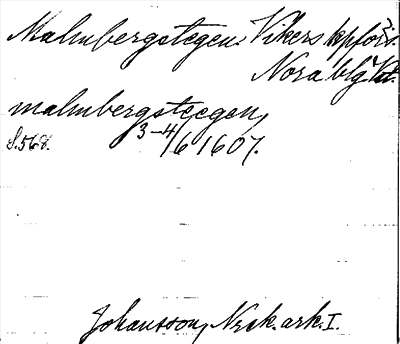 Malmbergstegen. Vikers kpförs.
Nora blg Vstm.
malmbergstegen,
S. 568. 3-4/6 1607.
Johansson, Nysk. ark. I.